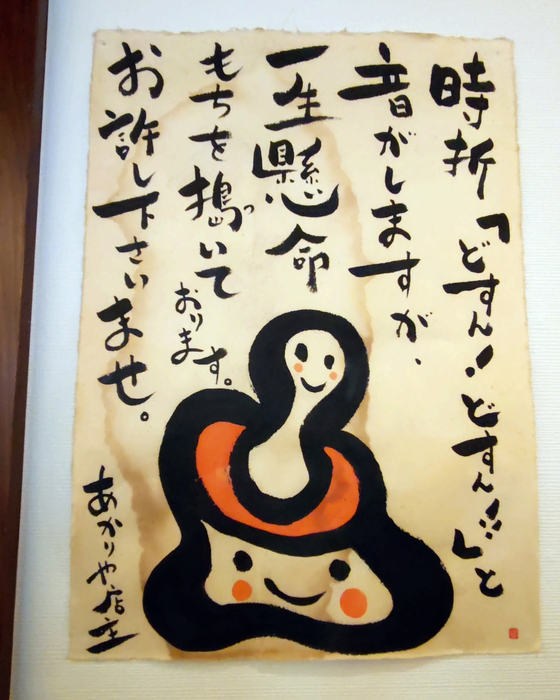 時折「どすん!どすん!!」と
音がしますが、
一生懸命
もちを搗いて
おります。
お許し下さいませ。
あかりや店主